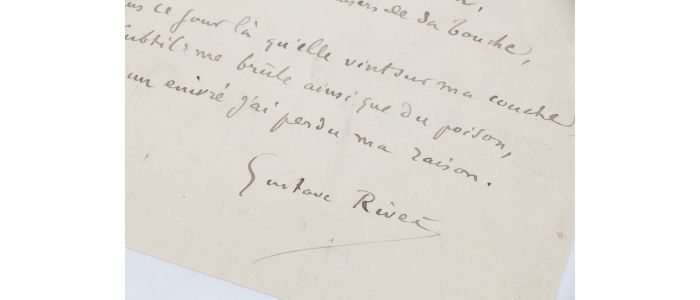 de sa bouche,
ce jour là qu'elle vint sur ma couche,
subtil me brûle ainsi que du poison,
un enivré j'ai perdu ma raison.
Gustave Rivet